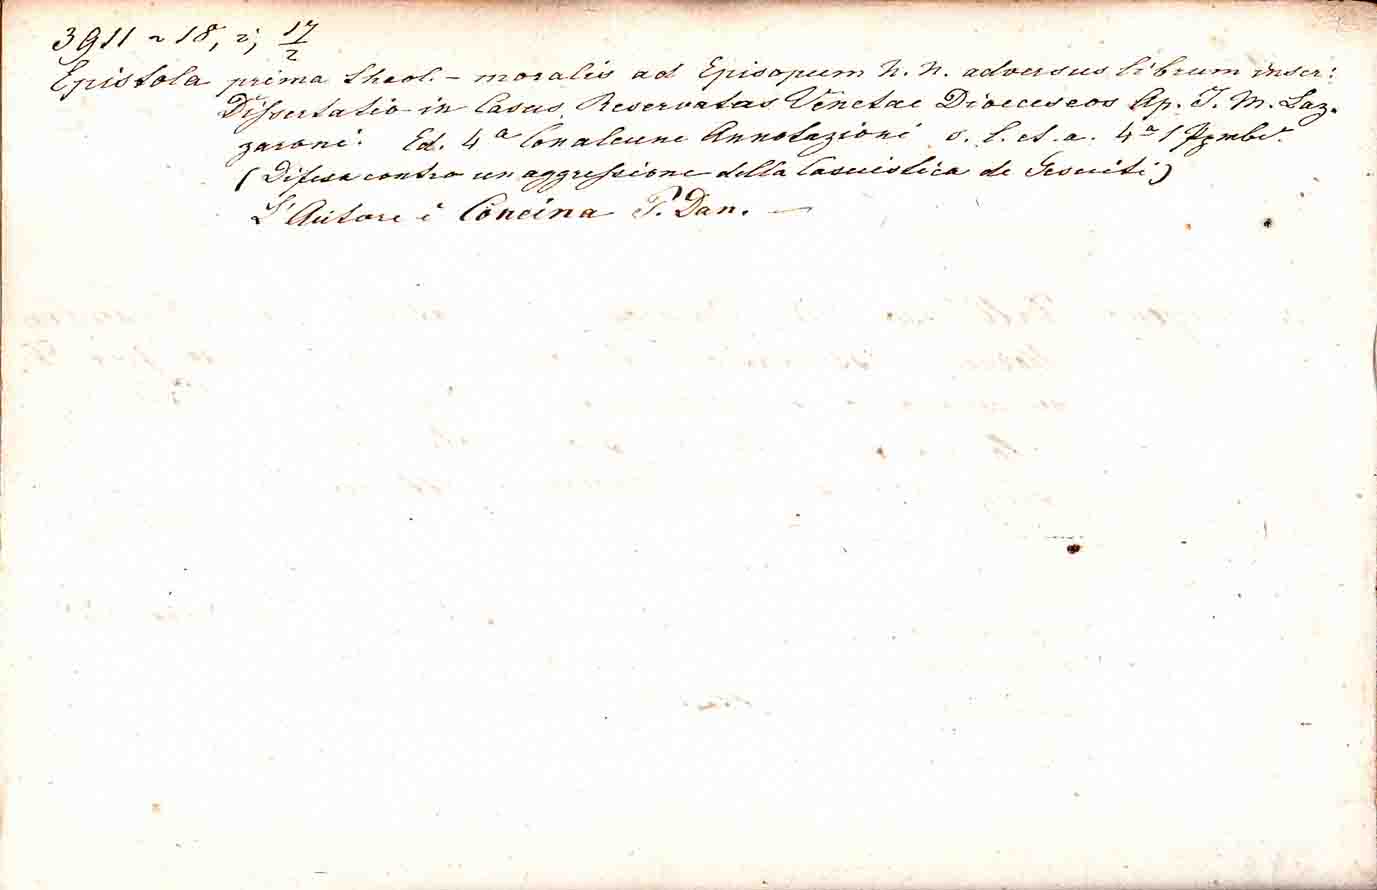 3911 ~ 18, 2; 17/2
Epistola prima theol. - moralis ad Episopum N. N. adversus librum inscr:
Dissertatio in Casus Reservatas Venetae Dioeceseos Ap. J. M. Laz-
zaroni. Ed. 4ª Con alcune Annotazioni s. l. et. a. 4º
(Difesa contro un aggressione della Casuistica de Gesuiti)
L'Autore è Concina P. Dan. —